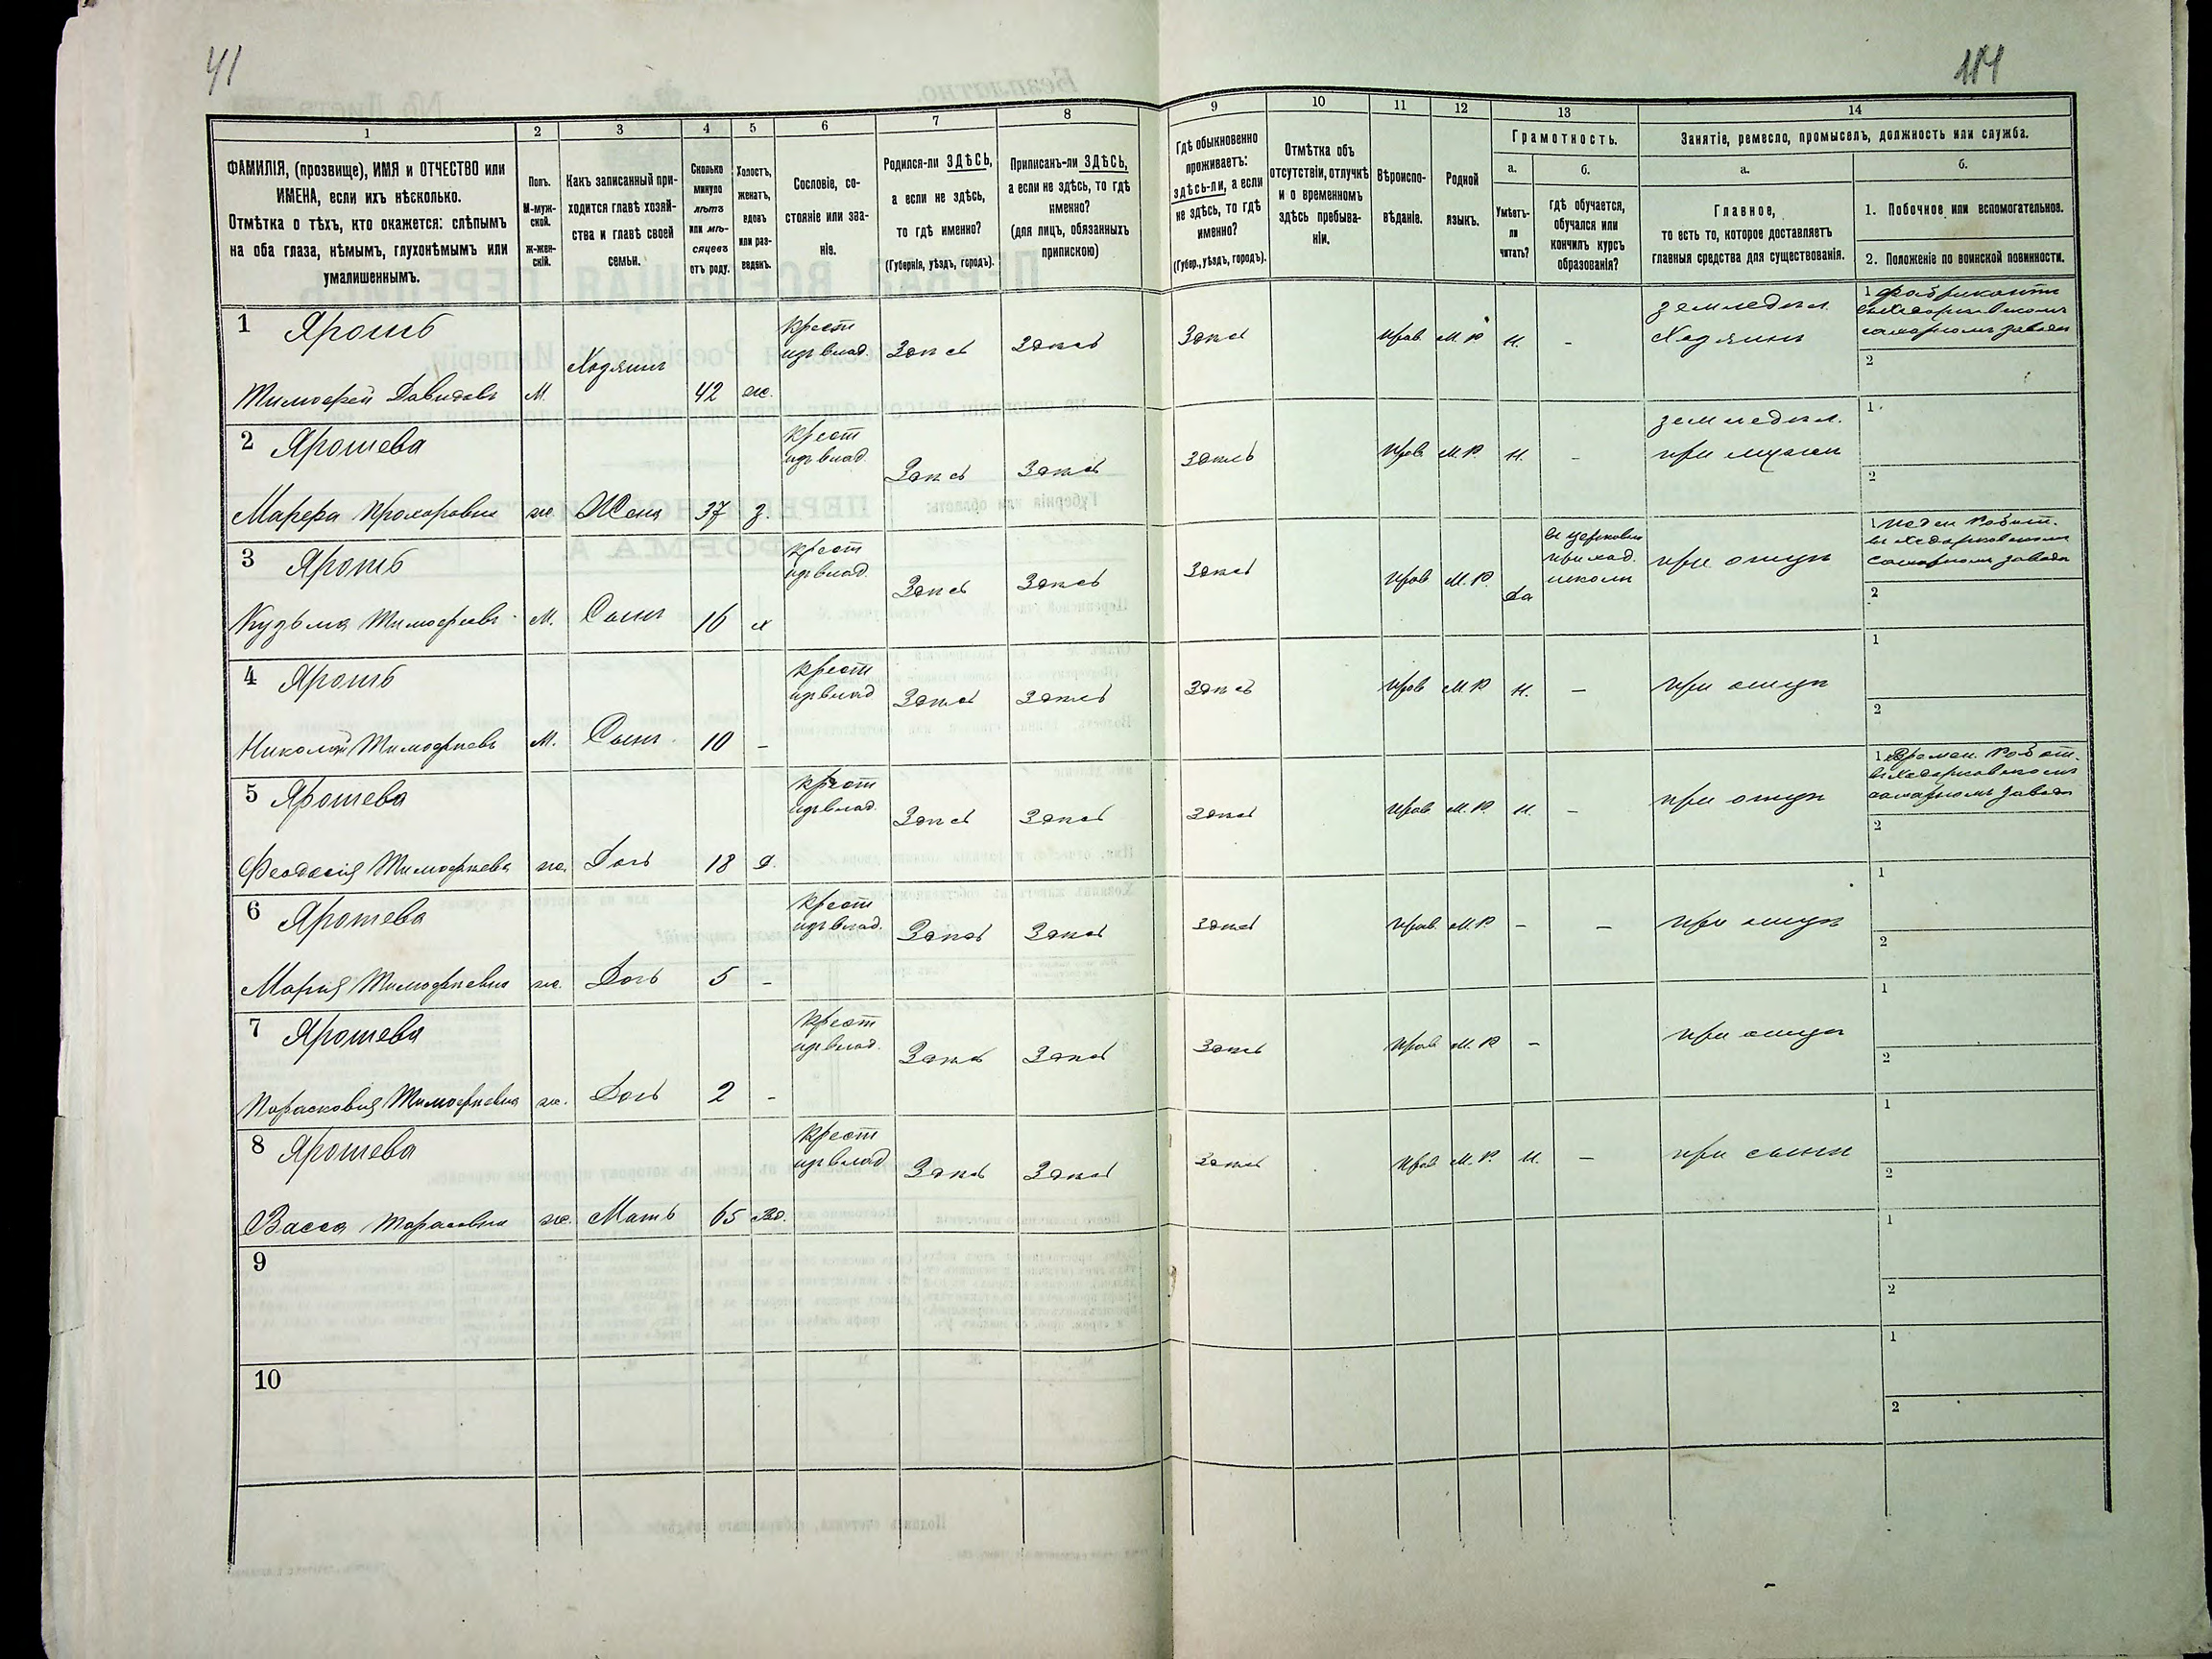 41
1
2
3
4
5
6
7
8
9
10
11
12
13
14
ФАМИЛІЯ, (прозвище), ИМЯ и ОТЧЕСТВО или
ИМЕНА, если ихъ нѣсколько.
Отмѣтка о тѣхъ, кто окажется: слѣпымъ
на оба глаза, нѣмымъ, глухонѣмымъ или
умалишеннымъ.
Полъ.
М-муж-
ской.
ж-жен-
скій.
Какъ записанный при-
ходится главѣ хозяй-
ства и главѣ своей
семьи.
Сколько
минуло
лѣтъ
или мѣ-
сяцевъ
отъ роду.
Холостъ,
женатъ,
вдовъ
или раз-
веденъ.
Сословіе, со-
стояніе или зва-
ніе.
Родился-ли ЗДѢСЬ,
а если не здѣсь,
то гдѣ именно?
(Губернія, уѣздъ, городъ).
Приписанъ-ли ЗДѢСЬ,
а если не здѣсь, то гдѣ
именно?
(для лицъ, обязанныхъ
припискою)
Гдѣ обыкновенно
проживаетъ:
здѣсь-ли, а если
не здѣсь, то гдѣ
именно?
(Губер., уѣздъ, городъ).
Отмѣтка объ
отсутствіи, отлучкѣ
и о временномъ
здѣсь пребыва-
ніи.
Вѣроиспо-
вѣданіе.
Родной
языкъ.
Грамотность.
а.
Умѣетъ-
ли
читать?
б.
гдѣ обучается,
обучался или
кончилъ курсъ
образованія?
Занятіе, ремесло, промыселъ, должность или служба.
а.
Главное,
то есть то, которое доставляетъ
главныя средства для существованія.
б.
1. Побочное или вспомогательное.
2. Положеніе по воинской повинности.
1 Ярошъ
Тимофей Давидовъ М. Хозяинъ 42 ж. Крест. изъ влад. Здѣсь Здѣсь Здѣсь Прав. М.Р. Н. - земледѣл. Хозяинъ
1
сахарномъ заводѣ
2
2 Ярошева
Прохоровна ж Жена 37 з. Крест изъ влад. Здѣсь Здѣсь Здѣсь Прав М.Р. Н. - земледѣл. при мужѣ
1
2
3 Ярошъ
Кузьма Тимофѣевъ М. Сынъ 16 х Крест изъ влад. Здѣсь Здѣсь Здѣсь Прав М.Р. Да въ церковно приход. школѣ при отцѣ
1
сахарномъ заводѣ
2
4 Ярошъ
Николай Тимофѣевъ М. Сынъ 10 - Крест изъ влад Здѣсь Здѣсь Здѣсь Прав М.Р. Н. - при отцѣ
1
2
5 Ярошева
Феодосія Тимофѣева ж. Дочь 18 д. Крест изъ влад. Здѣсь Здѣсь Здѣсь Прав М.Р. Н. - при отцѣ
1
сахарномъ заводѣ
2
6 Ярошева
Марія Тимофѣевна ж. Дочь 5 - Крест изъ влад. Здѣсь Здѣсь Здѣсь Прав. М.Р. - - при отцѣ
1
2
7 Ярошева
Парасковія Тимофѣевна ж. Дочь 2 - Крест изъ влад. Здѣсь Здѣсь Здѣсь Прав М.Р. - при отцѣ
1
2
8 Ярошева
Васса Тарасовна ж. Мать 65 Вд. Крест изъ влад Здѣсь Здѣсь Здѣсь Прав М.Р. Н. - при сынѣ
1
2
9
1
2
10
1
2